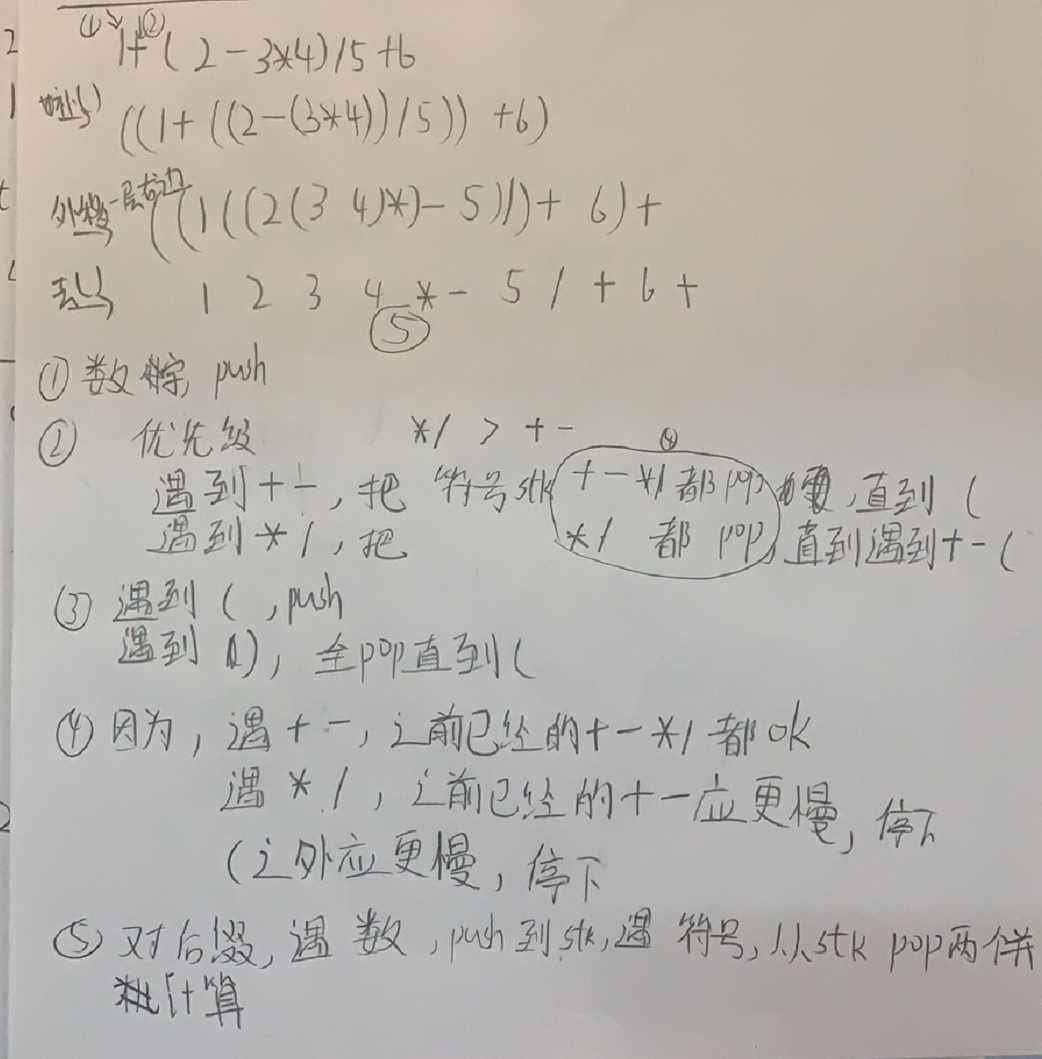 ① ②
1+(2-3*4)/5+6
((1+((2-(3*4))/5))+6)
外移一层右边 ((1((2(3 4)*)-5)/)+ 6)+
去括号 1 2 3 4 * - 5 / + 6 +
⑤
① 数字, push
② 优先级 */ > +- ④
遇到+-,把 符号stk +-*/都pop ,直到(
遇到*/,把 */ 都 pop,直到遇到+-(
③ 遇到(,push
遇到),全pop直到(
④ 因为,遇+-,之前已经的+-*/都ok
遇*/,之前已经的+-应更慢,停下
(之外应更慢,停下
⑤ 对后缀,遇数,push到stk,遇符号,从stk pop两个
计算